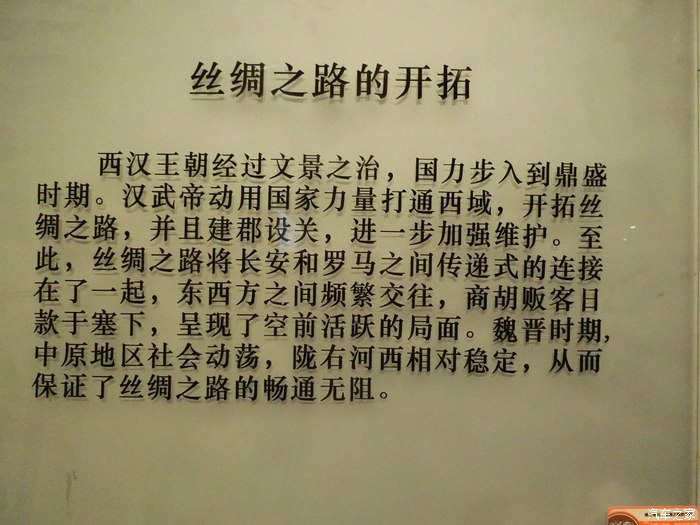 丝绸之路的开拓
西汉王朝经过文景之治，国力步入到鼎盛
时期。汉武帝动用国家力量打通西域，开拓丝
绸之路，并且建郡设关，进一步加强维护。至
此，丝绸之路将长安和罗马之间传递式的连接
在了一起，东西方之间频繁交往，商胡贩客日
款于塞下，呈现了空前活跃的局面。魏晋时期，
中原地区社会动荡，陇右河西相对稳定，从而
保证了丝绸之路的畅通无阻。
汽车之家